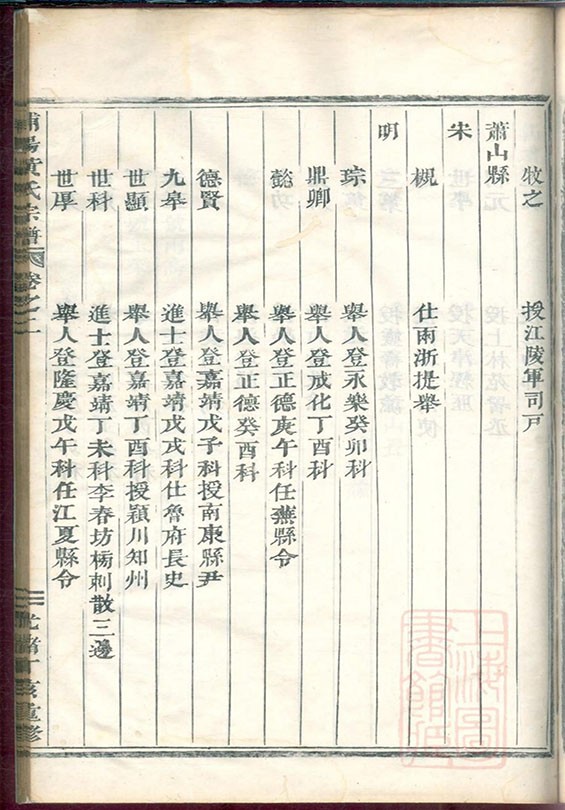 牧之 授江陵軍司戶
蕭山縣
宋
槻 仕兩浙提舉
明
琮 舉人登永樂癸卯科
鼎卿 舉人登成化丁酉科
懿 舉人登正德庚午科任燕縣令
舉人登正德癸酉科
德賢 舉人登嘉靖戊子科授南康縣尹
九皋 進士登嘉靖戊戌科仕魯府長史
世顯 舉人登嘉靖丁酉科授潁川知州
世科 進士登嘉靖丁未科李春坊榜刺散三邊
世厚 舉人登隆慶戊午科任江夏縣令
埔陽黃氏宗譜 卷之二 光緒丁亥重修
上海圖書館藏